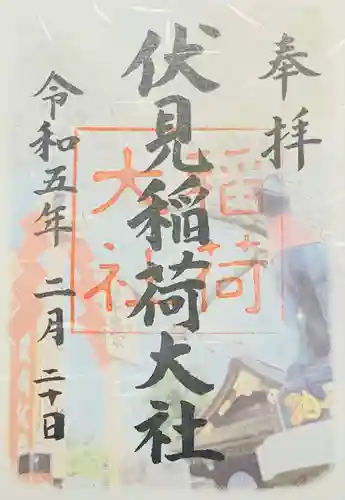 奉拝
伏見稲荷大社
稲荷
大社
令和五年 二月 二十日